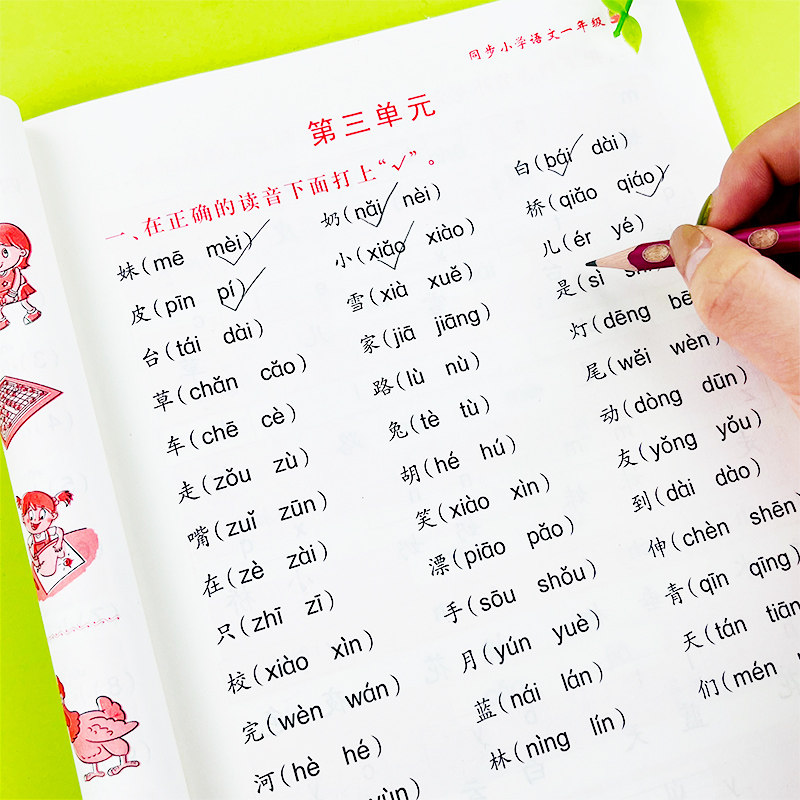 同步小学语文一年级
第三单元
一、在正确的读音下面打上“√”。
妹(mē mèi) 奶(nǎi nèi) 白(bái dài)
皮(pīn pí) 小(xiǎo xiào) 桥(qiǎo qiáo)
台(tái dài) 雪(xià xuě) 儿(ér yé)
草(chǎn cǎo) 家(jiā jiāng) 是(sì
车(chē cè) 路(lù nù) 灯(dēng
走(zǒu zù) 兔(tè tù) 尾(wěi wèn)
嘴(zuǐ zūn) 胡(hé hú) 动(dòng dūn)
在(zè zài) 笑(xiào xìn) 友(yǒng yǒu)
只(zhī zī) 漂(piāo pǎo) 到(dài dào)
校(xiào xìn) 手(sōu shǒu) 伸(chèn shēn)
完(wèn wán) 月(yún yuè) 青(qīn qīng)
河(hè hé) 蓝(nái lán) 天(tán tiān
林(nìng lín) 们(mén